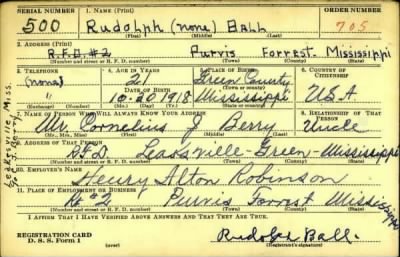 SERIAL NUMBER 1. NAME (Print) ORDER NUMBER
500 Rudolph (none) Ball 705
(First) (Middle) (Last)
2. ADDRESS (Print)
R.F.D. #2 Purvis Forrest Mississippi
(Number and street or R. F. D. number) (Town) (County) (State)
3. TELEPHONE 4. AGE IN YEARS 5. PLACE OF BIRTH 6. COUNTRY OF CITIZENSHIP
(none) 21 Green County
DATE OF BIRTH
" 10-20-1918 Mississippi USA
(Exchange) (Number) (Mo.) (Day) (Yr.) (State or country)
7. NAME OF PERSON WHO WILL ALWAYS KNOW YOUR ADDRESS 8. RELATIONSHIP OF THAT PERSON
Cornelius J Berry Uncle
(First) (Middle) (Last)
9. ADDRESS OF THAT PERSON
RFD Leaksville-Green-Mississippi
(Number and street or R. F. D. number) (Town) (County) (State)
10. EMPLOYER'S NAME
Henry Alton Robinson
11. PLACE OF EMPLOYMENT OR BUSINESS
Rt #2 Purvis Forrest Mississippi
(Number and street or R. F. D. number) (Town) (County) (State)
I AFFIRM THAT I HAVE VERIFIED ABOVE ANSWERS AND THAT THEY ARE TRUE.
REGISTRATION CARD
D. S. S. Form 1 Rudolph Ball.
(Registrant's signature)